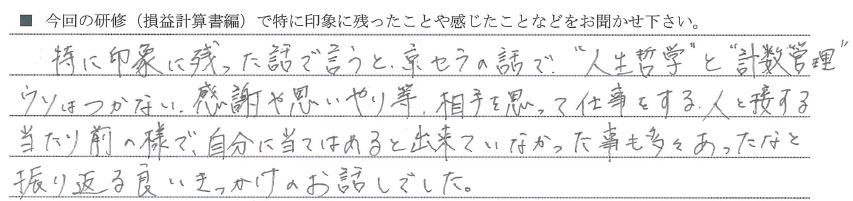 ■ 今回の研修（損益計算書編）で特に印象に残ったことや感じたことなどをお聞かせ下さい。
特に印象に残った話で言うと、京セラの話で、“人生哲学”と“計数管理”
ウソはつかない、感謝や思いやり等、相手を思って仕事をする、人と接する
当たり前の様で、自分に当てはめると出来ていなかった事も多々あったなと
振り返る良いきっかけのお話しでした。